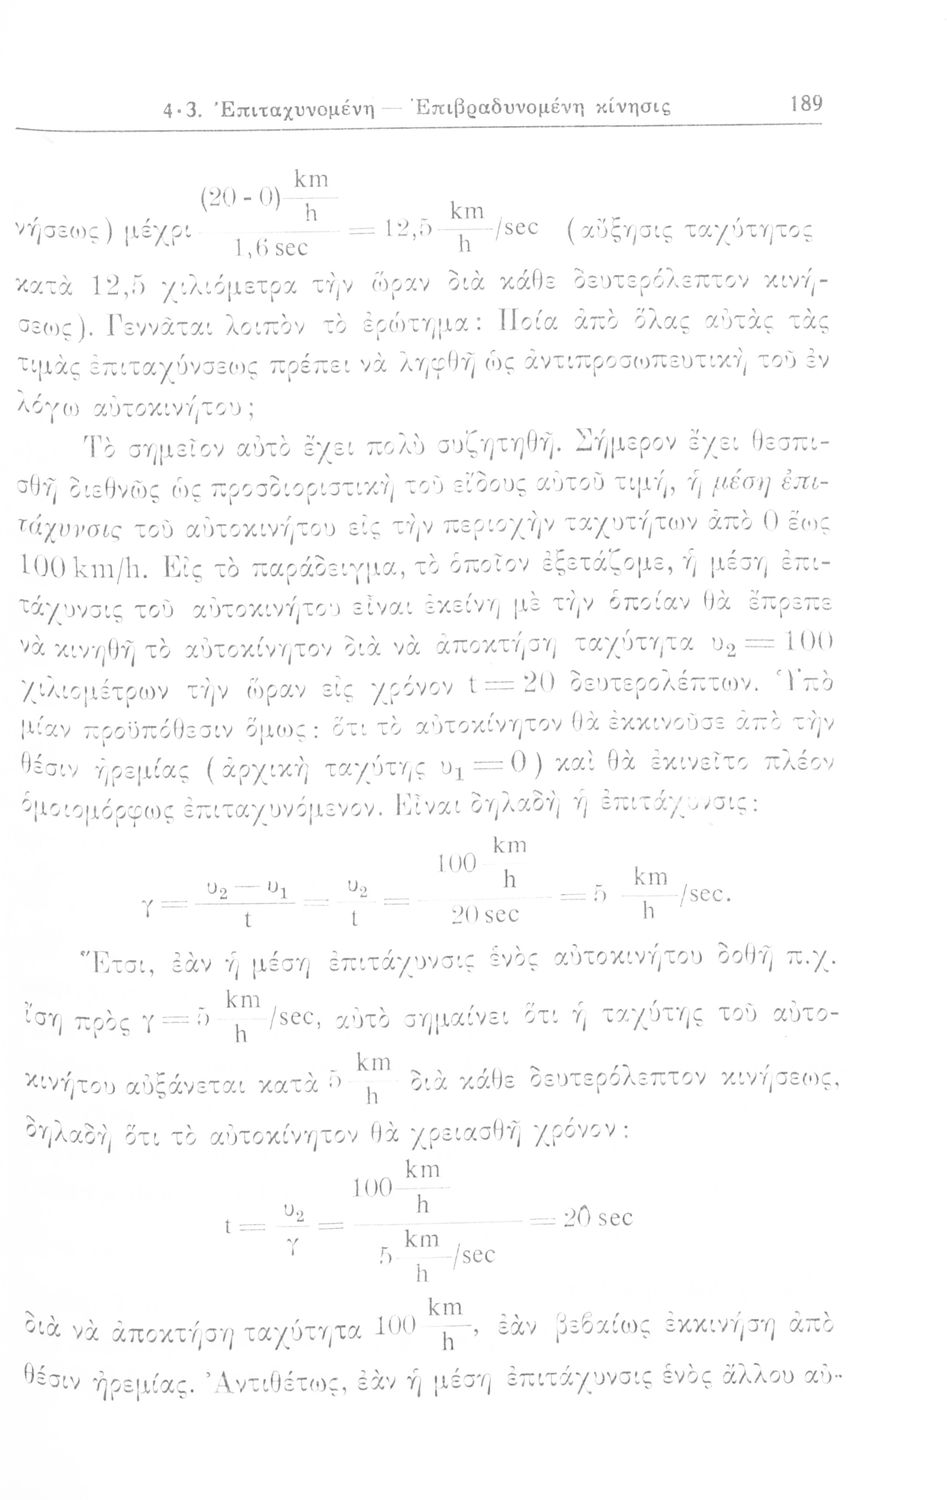 4·3. Ἐπιταχυνομένη — Ἐπιβραδυνομένη κίνησις 189
νήσεως) μέχρι (20 - 0) km/h / 1,6 sec = 12,5 km/h /sec (αὔξησις ταχύτητος
κατὰ 12,5 χιλιόμετρα τὴν ὥραν διὰ κάθε δευτερόλεπτον κινή-
σεως). Γεννᾶται λοιπὸν τὸ ἐρώτημα: Ποία ἀπὸ ὅλας αὐτὰς τὰς
τιμὰς ἐπιταχύνσεως πρέπει νὰ ληφθῇ ὡς ἀντιπροσωπευτικὴ τοῦ ἐν
λόγω αὐτοκινήτου;
Τὸ σημεῖον αὐτὸ ἔχει πολὺ συζητηθῆ. Σήμερον ἔχει θεσπι-
σθῆ διεθνῶς ὡς προσδιοριστικὴ τοῦ εἴδους αὐτοῦ τιμή, ἡ μέση ἐπι-
τάχυνσις τοῦ αὐτοκινήτου εἰς τὴν περιοχὴν ταχυτήτων ἀπὸ 0 ἕως
100 km/h. Εἰς τὸ παράδειγμα, τὸ ὁποῖον ἐξετάζομε, ἡ μέση ἐπι-
τάχυνσις τοῦ αὐτοκινήτου εἶναι ἐκείνη μὲ τὴν ὁποίαν θὰ ἔπρεπε
νὰ κινηθῆ τὸ αὐτοκίνητον διὰ νὰ ἀποκτήση ταχύτητα υ₂ = 100
χιλιομέτρων τὴν ὥραν εἰς χρόνον t = 20 δευτερολέπτων. Ὑπὸ
μίαν προϋπόθεσιν ὅμως: ὅτι τὸ αὐτοκίνητον θὰ ἐκκινοῦσε ἀπὸ τὴν
θέσιν ἠρεμίας (ἀρχικὴ ταχύτης υ₁ = 0) καὶ θὰ ἐκινεῖτο πλέον
ὁμοιομόρφως ἐπιταχυνόμενον. Εἶναι δηλαδὴ ἡ ἐπιτάχυνσις:
γ = υ₂ — υ₁ / t = υ₂ / t = 100 km/h / 20 sec = 5 km/h /sec.
Ἔτσι, ἐὰν ἡ μέση ἐπιτάχυνσις ἑνὸς αὐτοκινήτου δοθῆ π.χ.
ἴση πρὸς γ = 5 km/h /sec, αὐτὸ σημαίνει ὅτι ἡ ταχύτης τοῦ αὐτο-
κινήτου αὐξάνεται κατὰ 5 km/h διὰ κάθε δευτερόλεπτον κινήσεως,
δηλαδὴ ὅτι τὸ αὐτοκίνητον θὰ χρειασθῆ χρόνον:
t = υ₂ / γ = 100 km/h / 5 km/h /sec = 20 sec
διὰ νὰ ἀποκτήση ταχύτητα 100 km/h, ἐὰν βεβαίως ἐκκινήση ἀπὸ
θέσιν ἠρεμίας. Ἀντιθέτως, ἐὰν ἡ μέση ἐπιτάχυνσις ἑνὸς ἄλλου αὐ-